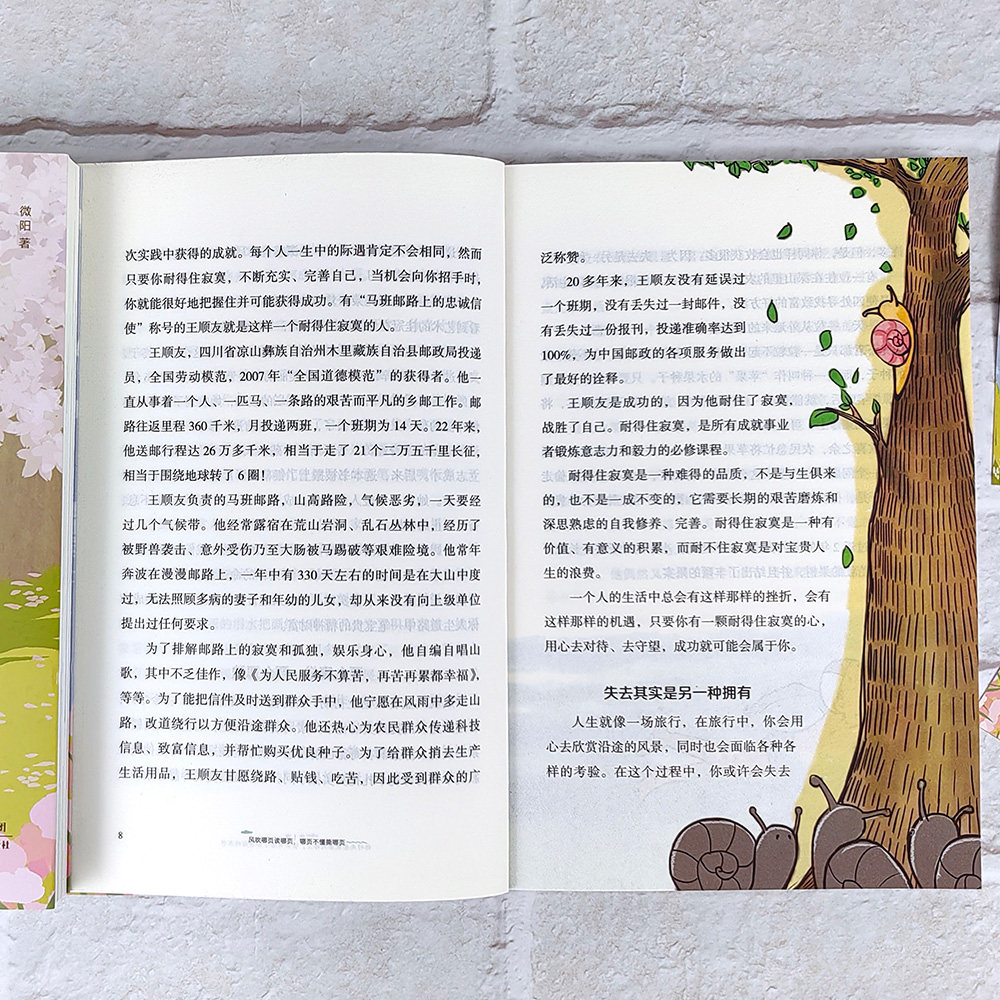 微阳 著
次实践中获得的成就。每个人一生中的际遇肯定不会相同，然而
只要你耐得住寂寞，不断充实、完善自己，当机会向你招手时，
你就能很好地把握住并可能获得成功。有“马班邮路上的忠诚信
使”称号的王顺友就是这样一个耐得住寂寞的人。
王顺友，四川省凉山彝族自治州木里藏族自治县邮政局投递
员，全国劳动模范，2007 年“全国道德模范”的获得者。他一
直从事着一个人、一匹马、一条路的艰苦而平凡的乡邮工作。邮
路往返里程 360 千米，月投递两班，一个班期为 14 天。22 年来，
他送邮行程达 26 万多千米，相当于走了 21 个二万五千里长征，
相当于围绕地球转了 6 圈！
王顺友负责的马班邮路，山高路险，气候恶劣，一天要经
过几个气候带。他经常露宿在荒山岩洞、乱石丛林中，经历了
被野兽袭击、意外受伤乃至大肠被马踢破等艰难险境。他常年
奔波在漫漫邮路上，一年中有 330 天左右的时间是在大山中度
过，无法照顾多病的妻子和年幼的儿女，却从来没有向上级单位
提出过任何要求。
为了排解邮路上的寂寞和孤独，娱乐身心，他自编自唱山
歌，其中不乏佳作，像《为人民服务不算苦，再苦再累都幸福》，
等等。为了能把信件及时送到群众手中，他宁愿在风雨中多走山
路，改道绕行以方便沿途群众。他还热心为农民群众传递科技
信息、致富信息，并帮忙购买优良种子。为了给群众捎去生产
生活用品，王顺友甘愿绕路、贴钱、吃苦，因此受到群众的广
8
风吹哪页读哪页，哪页不懂撕哪页
泛称赞。
20 多年来，王顺友没有延误过
一个班期，没有丢失过一封邮件，没
有丢失过一份报刊，投递准确率达到
100%，为中国邮政的各项服务做出
了最好的诠释。
王顺友是成功的，因为他耐住了寂寞，
战胜了自己。耐得住寂寞，是所有成就事业
者锻炼意志力和毅力的必修课程。
耐得住寂寞是一种难得的品质，不是与生俱来
的，也不是一成不变的，它需要长期的艰苦磨炼和
深思熟虑的自我修养、完善。耐得住寂寞是一种有
价值、有意义的积累，而耐不住寂寞是对宝贵人
生的浪费。
一个人的生活中总会有这样那样的挫折，会有
这样那样的机遇，只要你有一颗耐得住寂寞的心，
用心去对待、去守望，成功就可能会属于你。
失去其实是另一种拥有
人生就像一场旅行，在旅行中，你会用
心去欣赏沿途的风景，同时也会面临各种各
样的考验。在这个过程中，你或许会失去